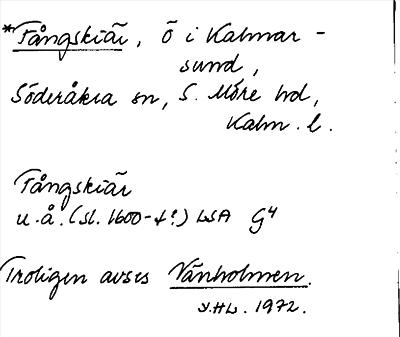 *Fångskiär, Ö i Kalmar-
sund,
Söderåkra sn, S. Möre hd,
Kalm. l.
Fångskiär
u.å. (sl. 1600-t?) LSA G4
Troligen avses Vänholmen.
1972.